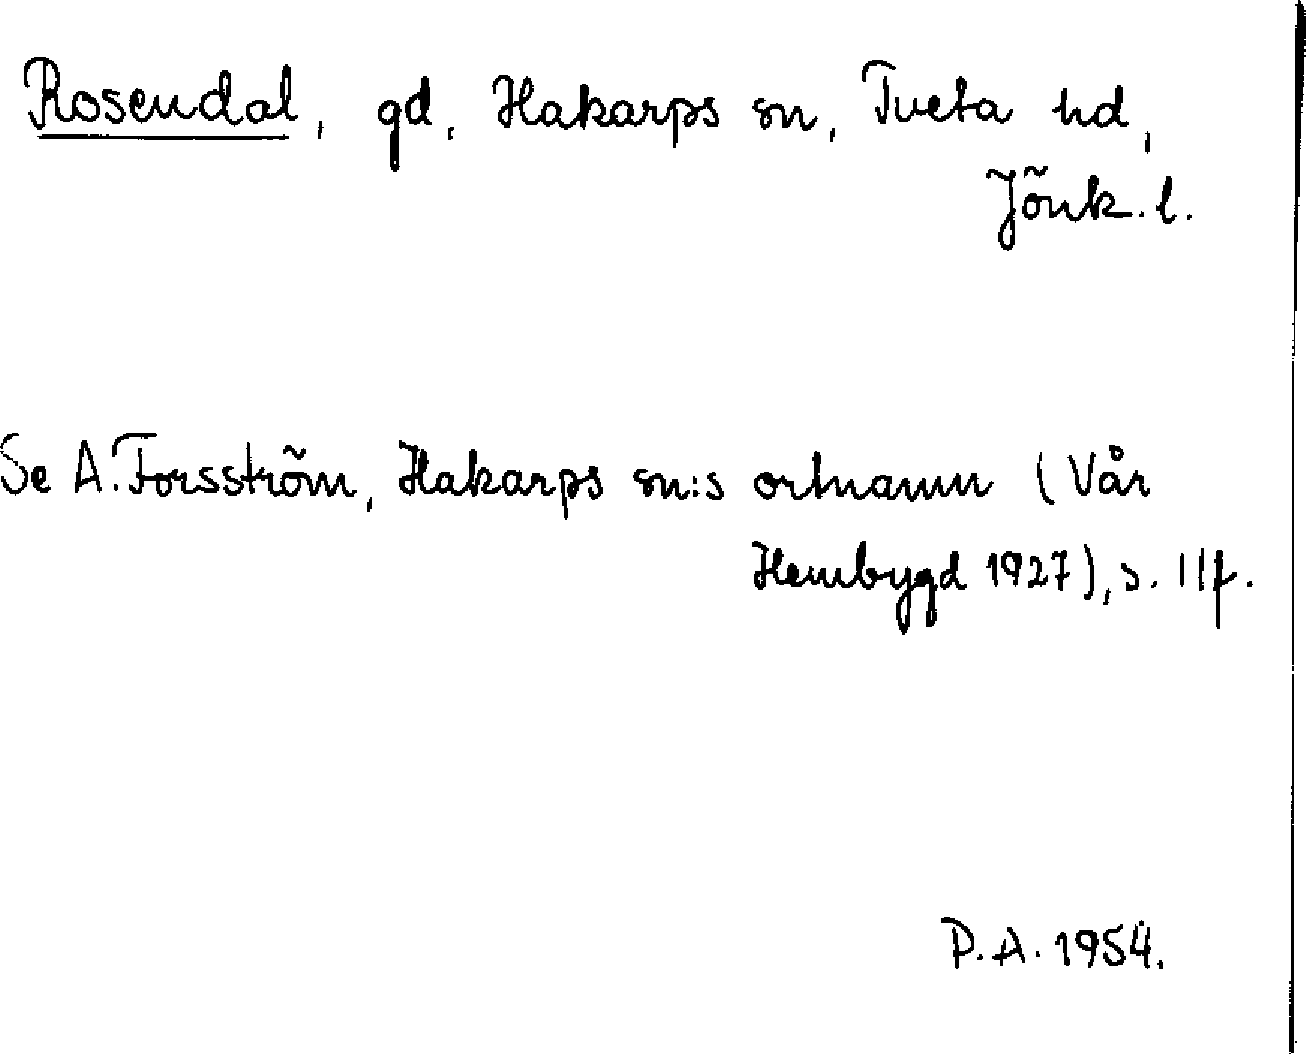 Rosendal, gd, Hakarps sn, Tveta hd,
Jönk. l.
Se A. Forsström, Hakarps sn:s ortnamn (Vår
Hembygd 1927), s. 11f.
P. A. 1954.